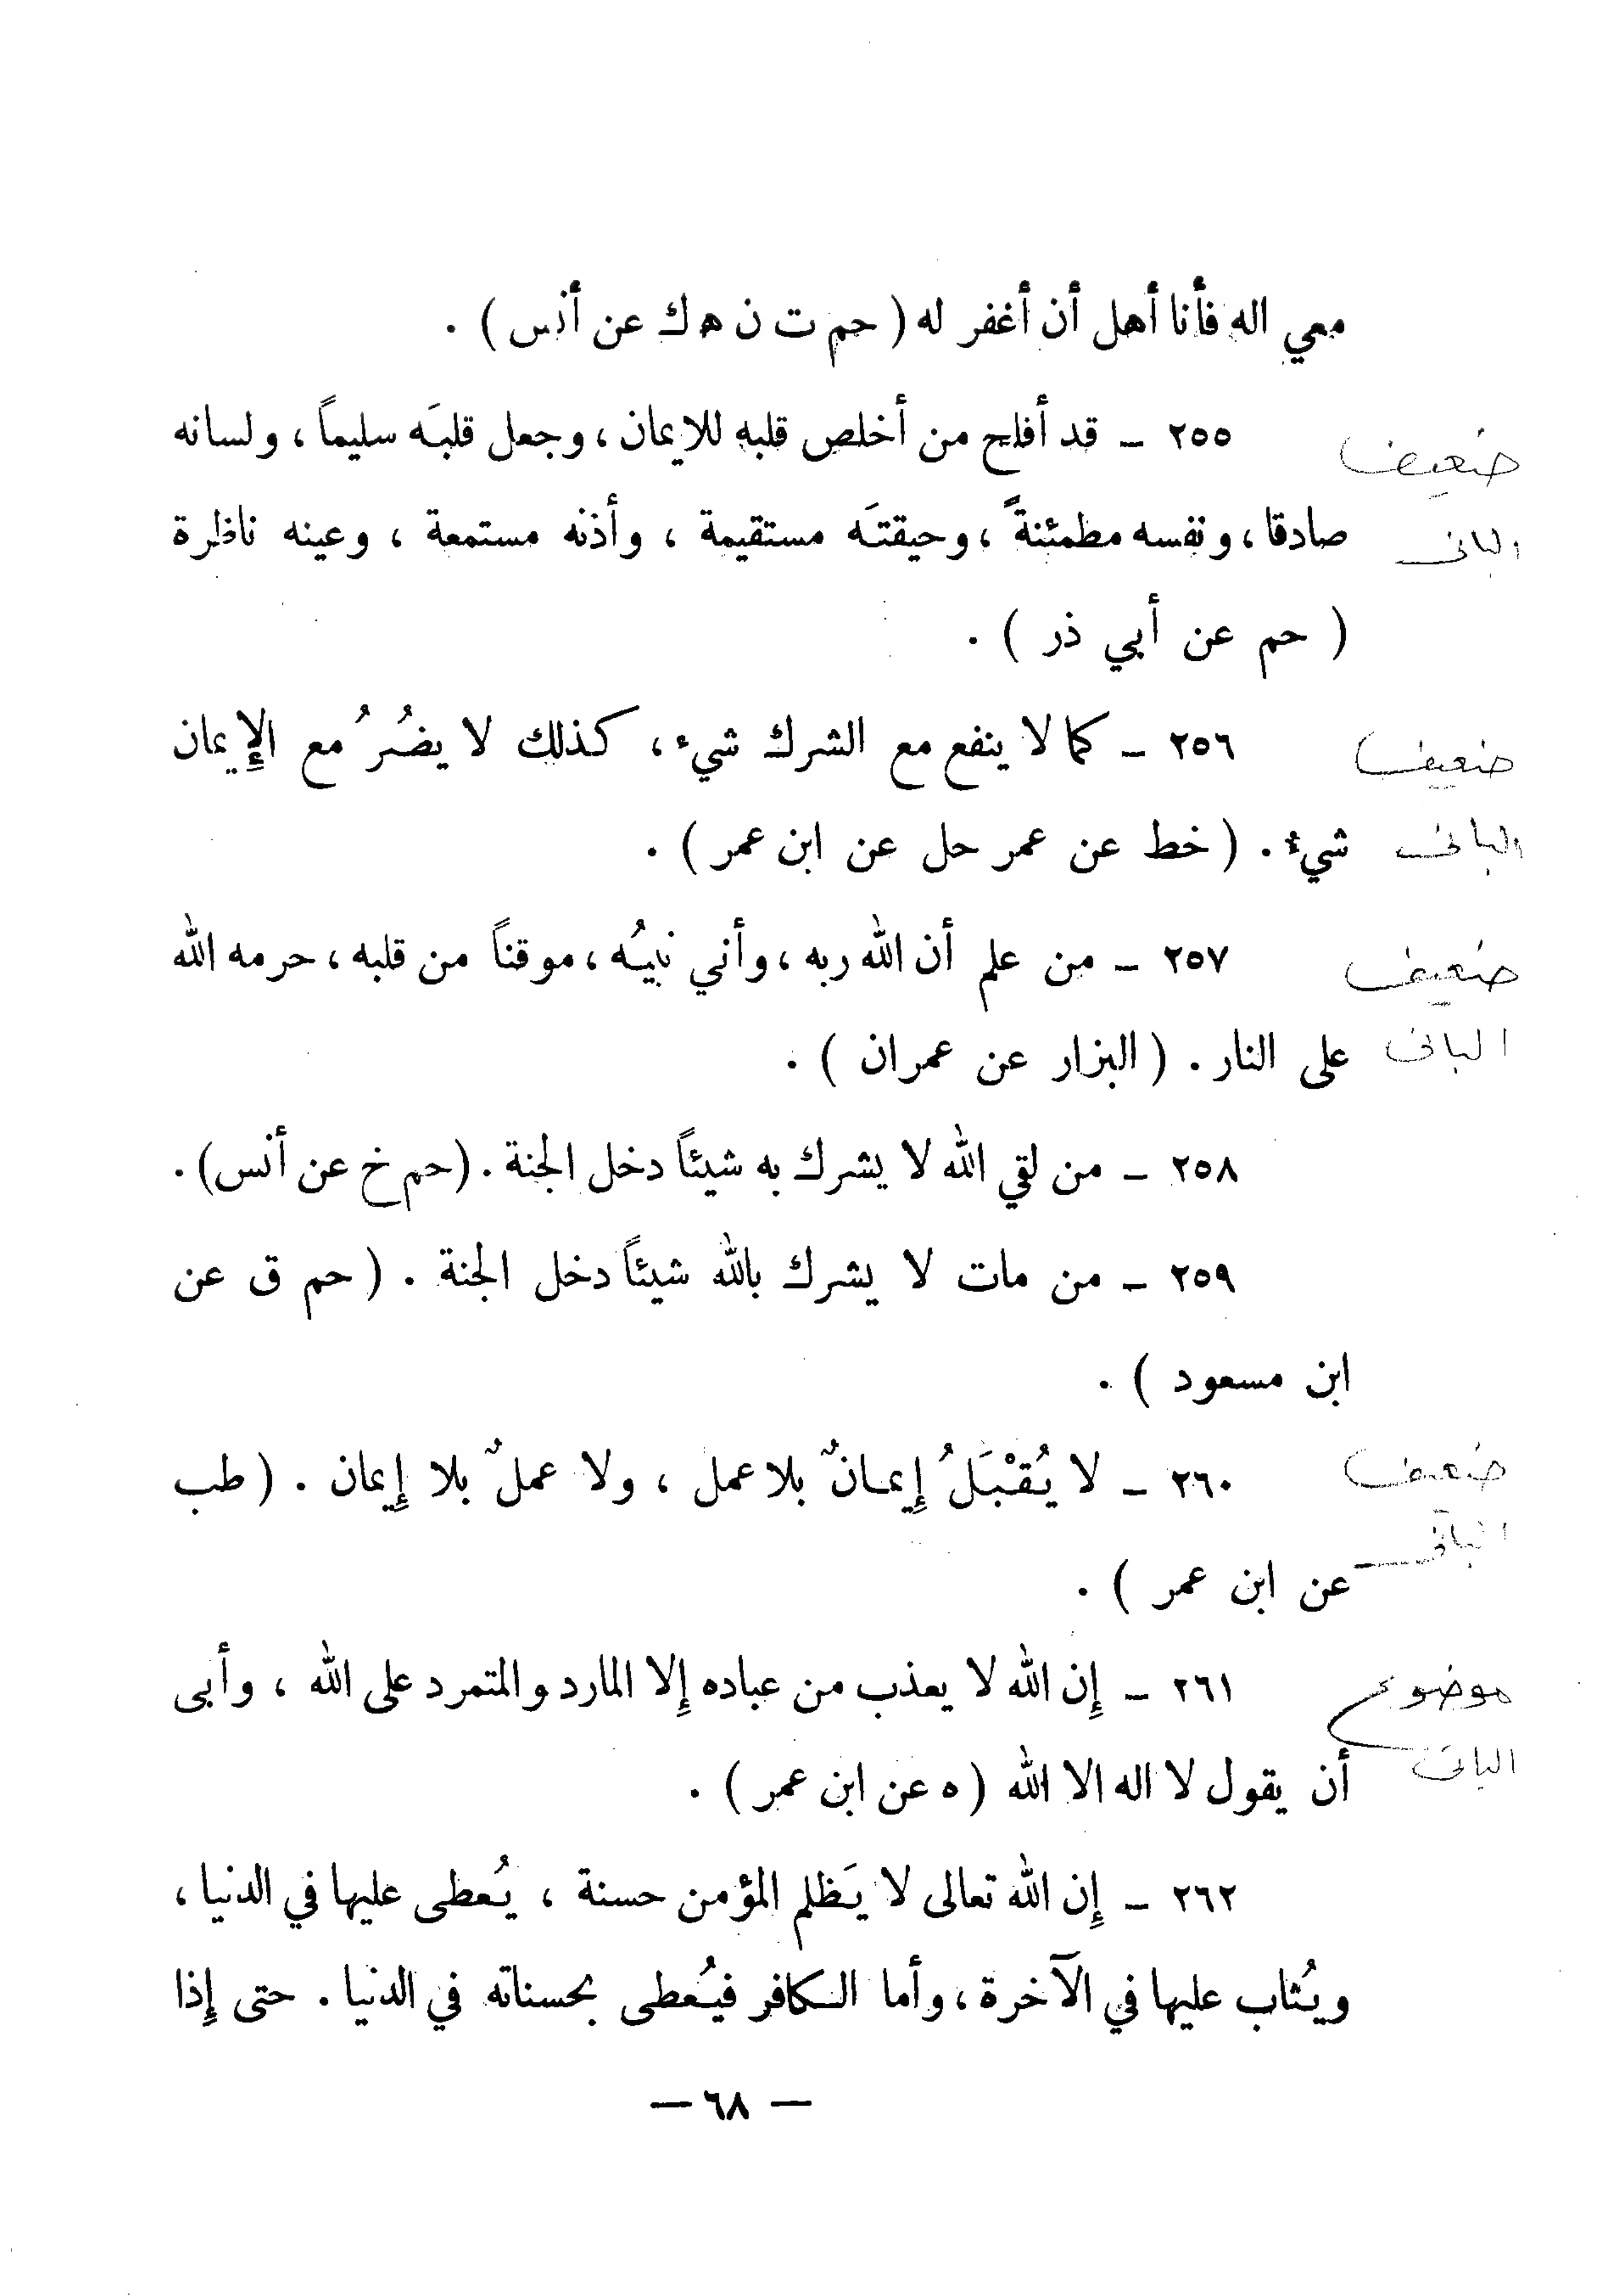 معي اله فأنا أهل أن أغفر له ( حم ت ن ه ك عن أنس ) .
ضعيف
٢٥٥ - قد أفلح من أخلص قلبه للإيمان ، وجعل قلبَه سليماً ، ولسانه
البانى
صادقا ، ونفسه مطمئنةً ، وحيقتَه مستقيمة ، وأذنه مستمعة ، وعينه ناظرة
( حم عن أبي ذر ) .
ضعيف
٢٥٦ - كما لا ينفع مع الشرك شيء ، كذلك لا يضُرُ مع الإِيمان
البانى
شيءٌ . ( خط عن عمر حل عن ابن عمر ) .
ضعيف
٢٥٧ - من علم أن الله ربه ، وأني نبيُه ، موقناً من قلبه ، حرمه الله
البانى
على النار . ( البزار عن عمران ) .
٢٥٨ - من لقي الله لا يشرك به شيئاً دخل الجنة . ( حم خ عن أنس ) .
٢٥٩ - من مات لا يشرك بالله شيئاً دخل الجنة . ( حم ق عن
ابن مسعود ) .
ضعيف
٢٦٠ - لا يُقْبَلُ إِيمانٌ بلا عمل ، ولا عملٌ بلا إِيمان . ( طب
البانى
عن ابن عمر ) .
موضوع
٢٦١ - إِن الله لا يعذب من عباده إِلا المارد والمتمرد على الله ، وأبى
البانى
أن يقول لا اله الا الله ( ه عن ابن عمر ) .
٢٦٢ - إِن الله تعالى لا يَظلم المؤمن حسنة ، يُعطى عليها في الدنيا ،
ويُثاب عليها في الآخرة ، وأما الكافر فيُعطى بحسناته في الدنيا . حتى إِذا
— ٦٨ —